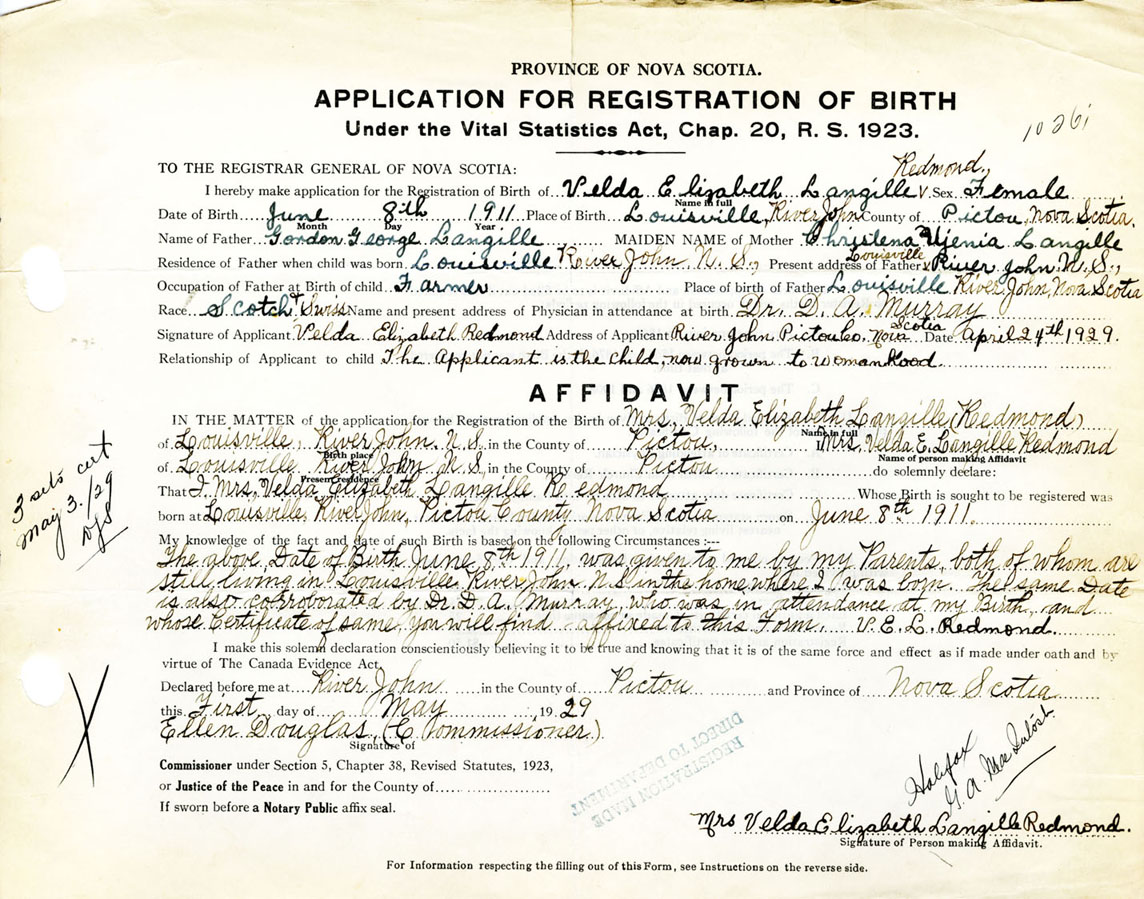 PROVINCE OF NOVA SCOTIA.
APPLICATION FOR REGISTRATION OF BIRTH
Under the Vital Statistics Act, Chap. 20, R. S. 1923.
10261
TO THE REGISTRAR GENERAL OF NOVA SCOTIA:
Redmond,
I hereby make application for the Registration of Birth of Velda Elizabeth Langille Sex Female
Name in full
Date of Birth June 8th 1911 Place of Birth Louisville, River John County of Pictou, Nova Scotia.
Month Day Year
Name of Father Gordon George Langille MAIDEN NAME of Mother Christena Ujenia Langille
Louisville
Residence of Father when child was born Louisville River John N. S., Present address of Father River John N. S.,
Occupation of Father at Birth of child Farmer Place of birth of Father Louisville River John, Nova Scotia
Race Scotch & Swiss Name and present address of Physician in attendance at birth Dr. D. A. Murray
Signature of Applicant Velda Elizabeth Redmond Address of Applicant River John Pictou Co. Nova Scotia Date April 24th 1929.
Relationship of Applicant to child The Applicant is the child now grown to womanhood.
AFFIDAVIT
IN THE MATTER of the application for the Registration of the Birth of Mrs, Velda Elizabeth Langille (Redmond)
Name in full
of Louisville, River John, N. S. in the County of Pictou, Mrs. Velda E. Langille Redmond
Birth place Name of person making Affidavit
of Louisville River John, N. S. in the County of Pictou do solemnly declare:
Present residence
That I, Mrs, Velda Elizabeth Langille Redmond Whose Birth is sought to be registered was
born at Louisville, River John, Pictou County Nova Scotia on June 8th 1911.
My knowledge of the fact and date of such Birth is based on the following Circumstances :—
The above Date of Birth June 8th 1911, was given to me by my Parents, both of whom are
still living in Louisville River John N.S in the home where I was born. The same Date
is also corroborated by Dr. D. A. Murray, who was in attendance at my Birth, and
whose Certificate of same, you will find affixed to this Form. V. E. L. Redmond.
I make this solemn declaration conscientiously believing it to be true and knowing that it is of the same force and effect as if made under oath and by
virtue of The Canada Evidence Act.
Declared before me at River John in the County of Pictou and Province of Nova Scotia
this First day of May 1929
Ellen Douglas, (Commissioner)
Signature of
Commissioner under Section 5, Chapter 38, Revised Statutes, 1923,
or Justice of the Peace in and for the County of
If sworn before a Notary Public affix seal.
3 sets cert
May 3./29
REGISTRATION MADE
DIRECT TO DEPARTMENT
Halifax
G. A. MacIntosh
Mrs Velda Elizabeth Langille Redmond.
Signature of Person making Affidavit.
For Information respecting the filling out of this Form, see Instructions on the reverse side.